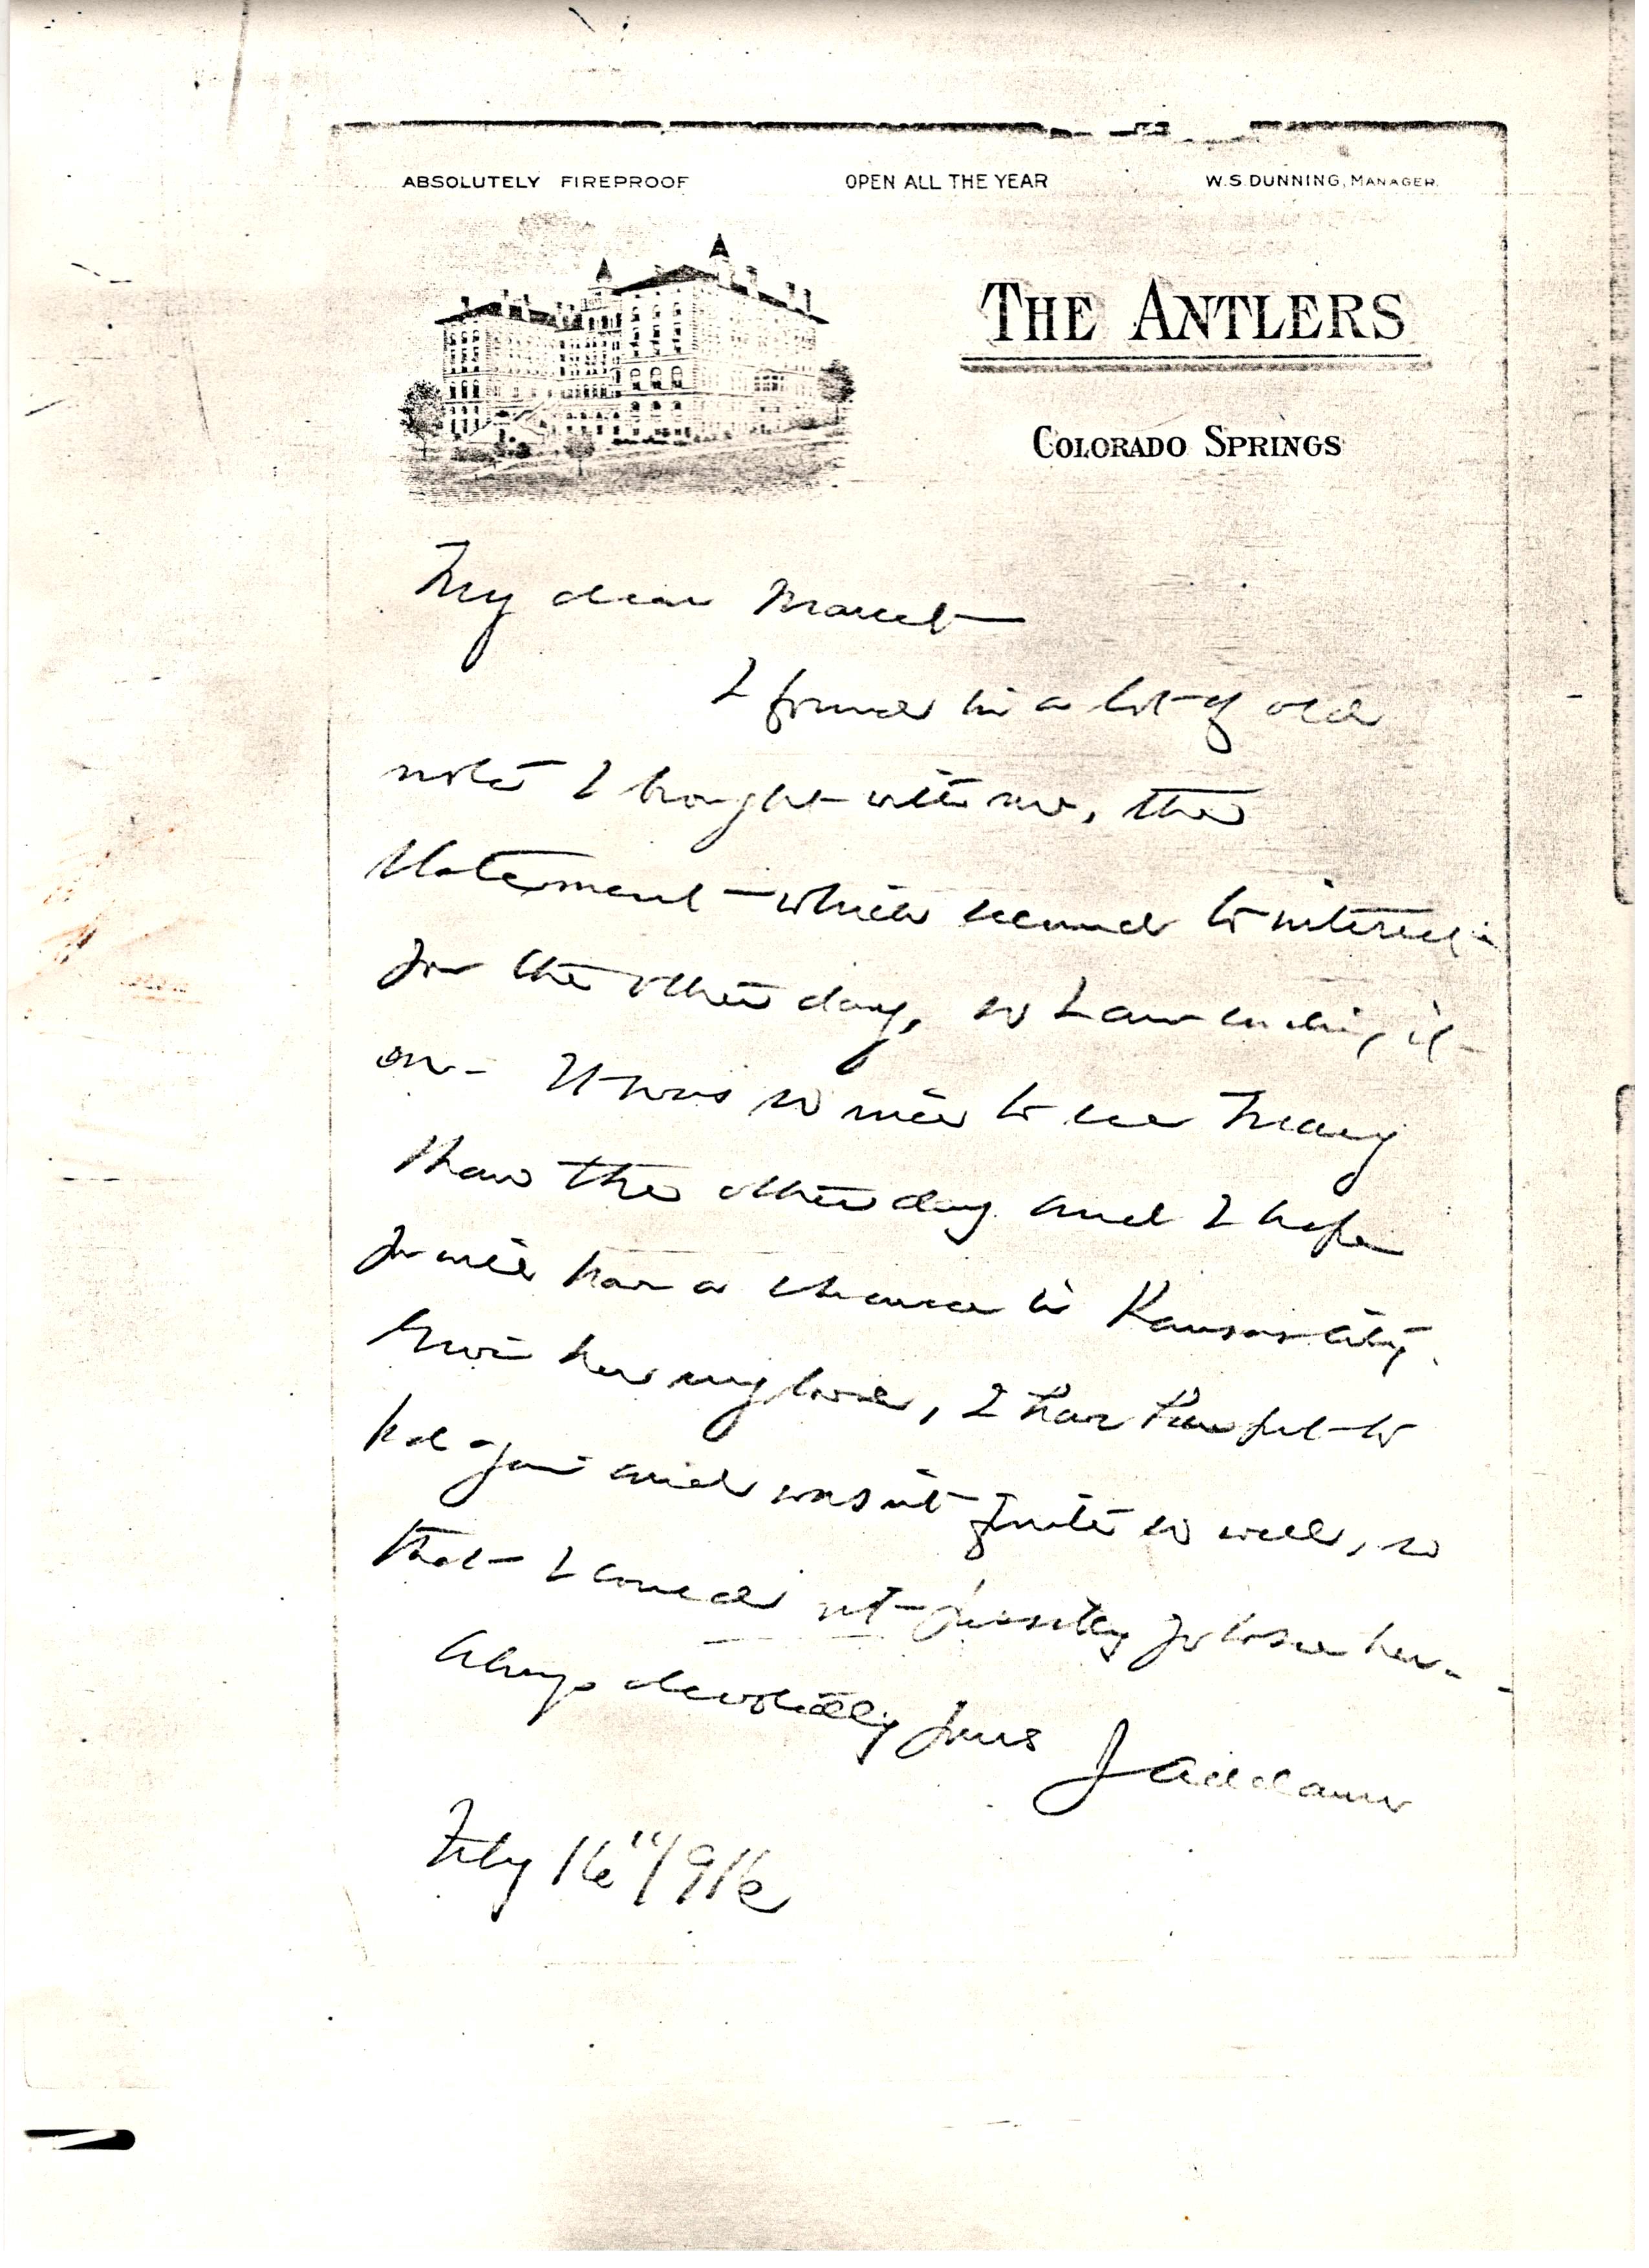 ABSOLUTELY FIREPROOF OPEN ALL THE YEAR W.S. DUNNING, MANAGER.
THE ANTLERS
COLORADO SPRINGS
My dear Marcet—
I found in a lot of old
notes I brought with me, the
statement—which seemed to interest
you the other day, so I am sending it—
on— It was so nice to see Mary
the other day and I hope
you will have a chance in Kansas City.
Give her my love, I have to
you and wasn't quite so well, so
that I could not possibly go to see her—
Always devotedly yours JAddams
Feby 16" 1916